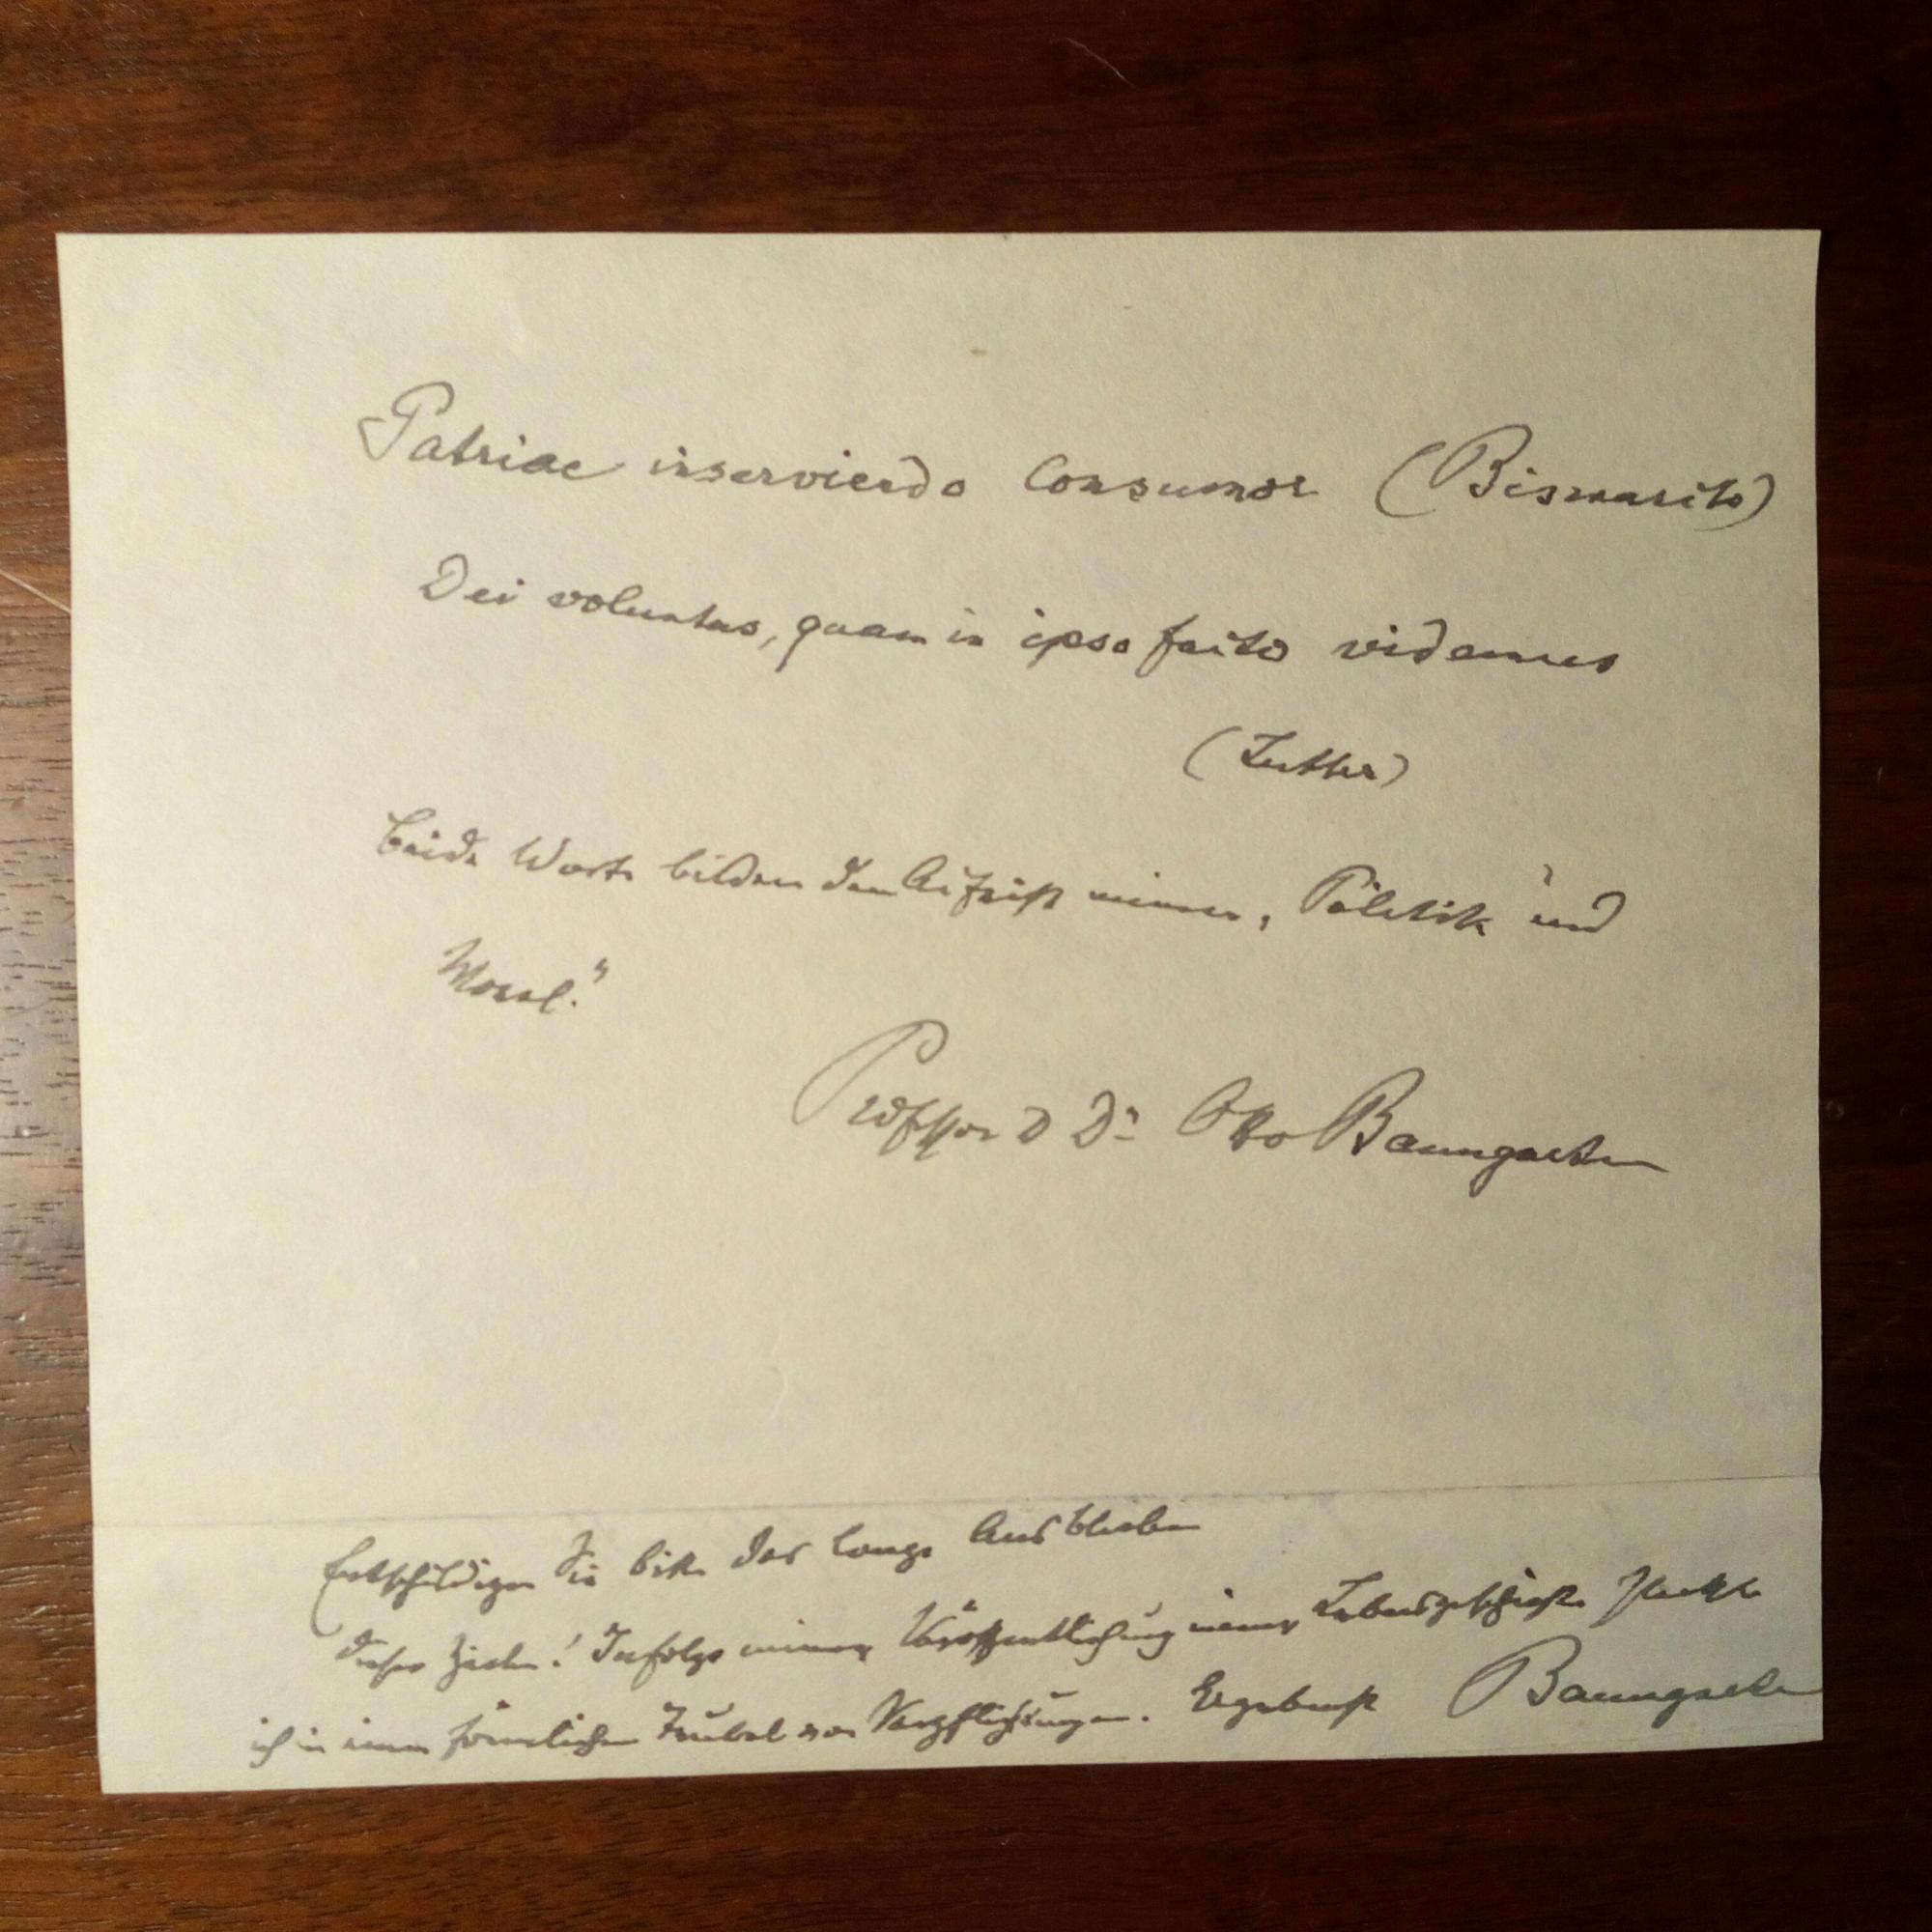 Patriae inserviendo consumor (Bismarck)
Dei voluntas, quam in ipso facto videmus
(Luther)
Beide Worte bilden den Aufriß meiner „Politik und
Moral."
Professor D Dr Otto Baumgarten
Entschuldigen Sie bitte das lange Ausbleiben
dieser Zeilen! Infolge meiner Veröffentlichung meiner Lebensgeschichte steckte
ich in einem förmlichen Trubel von Verpflichtungen. Ergebenst Baumgarten